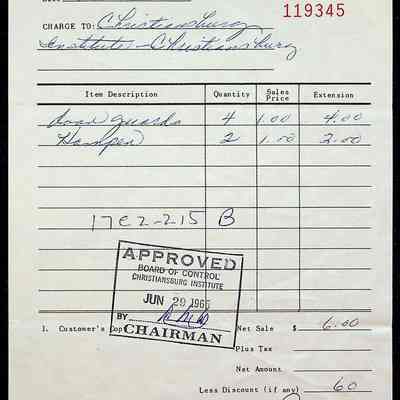 119345
CHARGE TO: Christiansburg
Institute - Christiansburg
Item Description Quantity Sales Price Extension
door guards 4 1.00 4.00
Hamper 2 1.00 2.00
17E2-215 B
APPROVED
BOARD OF CONTROL
CHRISTIANSBURG INSTITUTE
JUN 29 1966
BY
CHAIRMAN
1. Customer's Cop Net Sale $ 6.00
Plus Tax
Net Amount
Less Discount (if any) 60